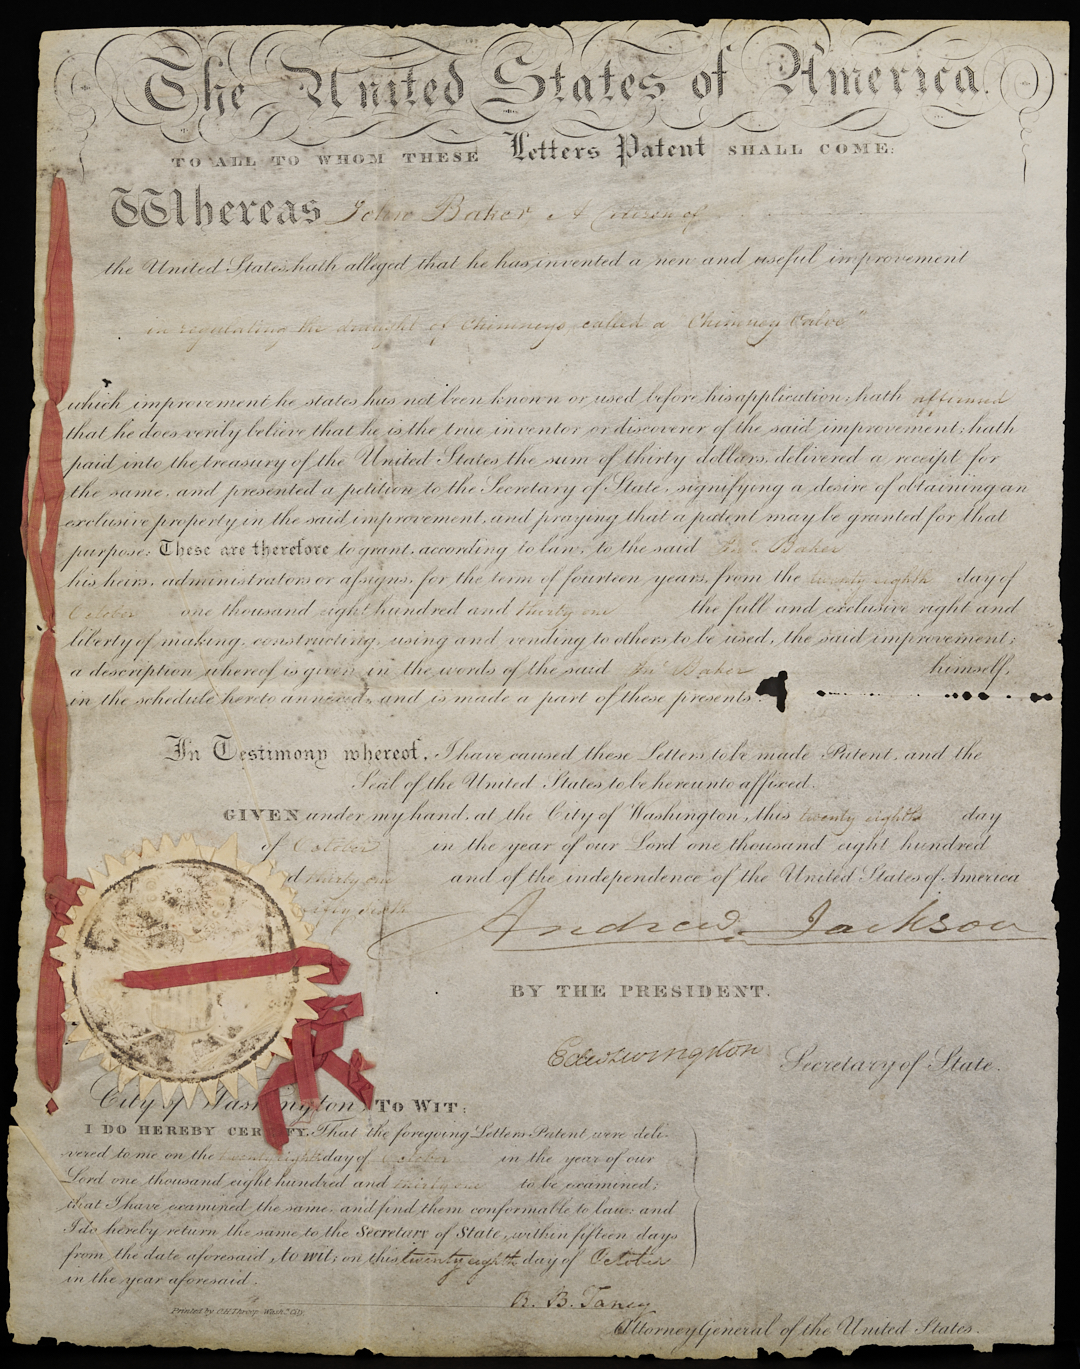 The United States of America.
TO ALL TO WHOM THESE Letters Patent SHALL COME:
Whereas John Baker A Citizen of
the United States hath alleged that he has invented a new and useful improvement
in regulating the draught of Chimneys called a "Chimney Valve"
which improvement he states has not been known or used before his application; hath affirmed
that he does verily believe that he is the true inventor or discoverer of the said improvement; hath
paid into the treasury of the United States the sum of thirty dollars, delivered a receipt for
the same, and presented a petition to the Secretary of State, signifying a desire of obtaining an
exclusive property in the said improvement, and praying that a patent may be granted for that
purpose: These are therefore to grant, according to law, to the said Jno. Baker
his heirs, administrators or assigns, for the term of fourteen years, from the twenty eighth day of
October one thousand eight hundred and thirty one the full and exclusive right and
liberty of making, constructing, using and vending to others to be used, the said improvement;
a description whereof is given in the words of the said Jno. Baker himself,
in the schedule hereto annexed, and is made a part of these presents.
In Testimony whereof, I have caused these Letters to be made Patent, and the
Seal of the United States to be hereunto affixed.
GIVEN under my hand, at the City of Washington, this twenty eighth day
of October in the year of our Lord one thousand eight hundred
thirty one and of the independence of the United States of America
fifty sixth
Andrew Jackson
BY THE PRESIDENT.
Edw Livingston Secretary of State.
City of Washington, TO WIT:
I DO HEREBY CERTIFY, That the foregoing Letters Patent were deli-
vered to me on the twenty eighth day of October in the year of our
Lord one thousand eight hundred and thirty one to be examined;
that I have examined the same, and find them conformable to law; and
I do hereby return the same to the Secretary of State, within fifteen days
from the date aforesaid, to wit; on this twenty eighth day of October
in the year aforesaid.
Printed by C.H. Throop Washn. City
R. B. Taney
Attorney General of the United States.